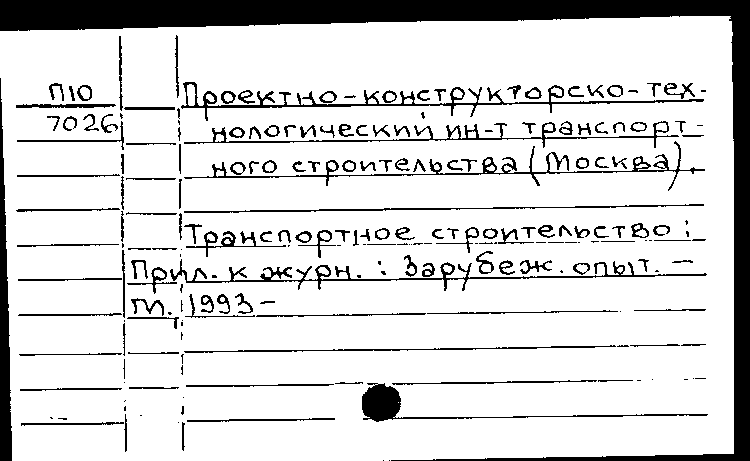 П10
7026
Проектно-конструкторско-тех-
нологический ин-т транспорт-
ного строительства (Москва).
Транспортное строительство:
Прил. к журн. : Зарубеж. опыт. —
М., 1993-